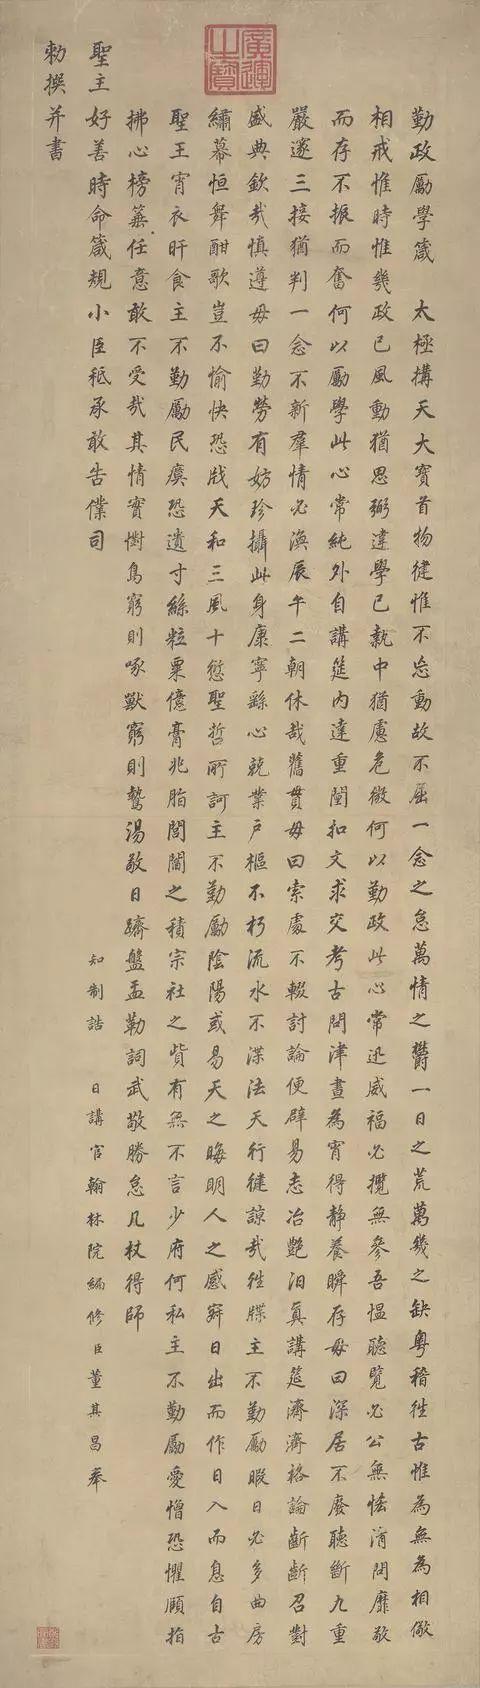 廣運之寶
勤政勵學箴 太極搆天大寶首物健惟不忘動故不屈一念之怠萬情之欝一日之荒萬幾之缺粤稽徃古惟為無為相儆
相戒惟時惟幾政已風動猶思弼違學已執中猶慮危微何以勤政此心常迅威福必攬無參吾愠聽覽必公無恡清問靡敢
而存不振而奮何以勵學此心常純外自講筵內達重闈扣文求交考古問津晝為宵得靜養瞬存毋曰深居不廢聽斷九重
嚴邃三接猶判一念不新羣情必渙辰午二朝休哉舊貫毋曰索處不輟討論便辟易志冶艷汨真講筵濟濟格論齗齗召對
盛典欽哉慎遵毋曰勤勞有妨珍攝此身康寧繇心兢業戶樞不朽流水不渫法天行健諒哉徃牒主不勤勵暇日必多曲房
繡幕恒舞酣歌豈不愉快恐戕天和三風十愆聖哲所訶主不勤勵陰陽或易天之晦明人之感寤日出而作日入而息自古
聖王宵衣旰食主不勤勵民虞恐遺寸絲粒粟億膏兆脂閭閻之積宗社之貲有無不言少府何私主不勤勵愛憎恐懼顧指
拂心榜箠任意敢不受哉其情實懟鳥窮則啄獸窮則鷙湯敬日躋盤盂勒詞武敬勝怠几杖得師
聖主好善時命箴規小臣秪承敢告僕司 知制誥 日講官翰林院編修臣董其昌奉
勑撰并書